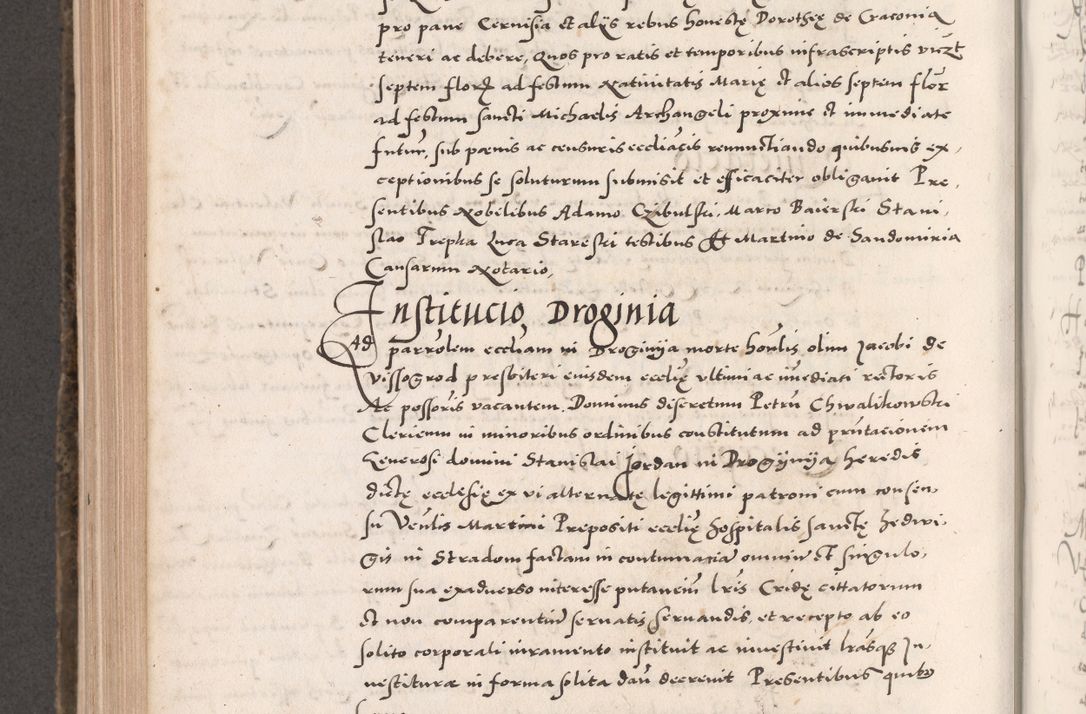 pro pane Cervisia et alijs rebus honestę Dorothee de Cracovia
teneri ac debere, Quos pro ratis et temporibus infrascriptis vizt
septem florẽ ad festum Nativitatis Marię et alios septem flor
ad festum sancti Michaelis Archangeli proxime et immediate
futur̃, sub pœnis ac censuris eccliãcis renunctiando quibusvis ex,
ceptionibus se soluturum submisit et efficaciter obligavit Pre,
sentibus Nobilibus Adamo Czibulski, Marco Baierski Stani,
slao Trepka Luca Stareski testibus Et Martino de Sandomiria
Causarum Notario,
Institucio, Droginia
Ad parrõlem eccliam in Droginya morte honlis olim Jacobi de
Vissogrod presbiteri eiusdem ecclię ultimi ac imediati rectoris
Ac possoris vacantem, Dominus discretum Petrũ Chwalikowski
Clericum in minoribus ordinibus constitutum ad pñtacionem
Generosi domini Stanislai Jordan in Drogynya heredis
dictę ecclesię ex vi alternatę legittimi patroni cum consen,
su Venlis Martini Prepositi ecclię hospitalis sanctę Hedvi,
gis in Stradom factam in contumacia omniũ et singulo,
rum sua exadverso interesse putaneiũ Lris Cridę cittatorum
et non comparentiũ servatis servandis, et recepto ab eo
solito corporali iuramento instituit ac investivit lrasque In,
vestituræ in forma solita dari decrevit Presentibus quibus